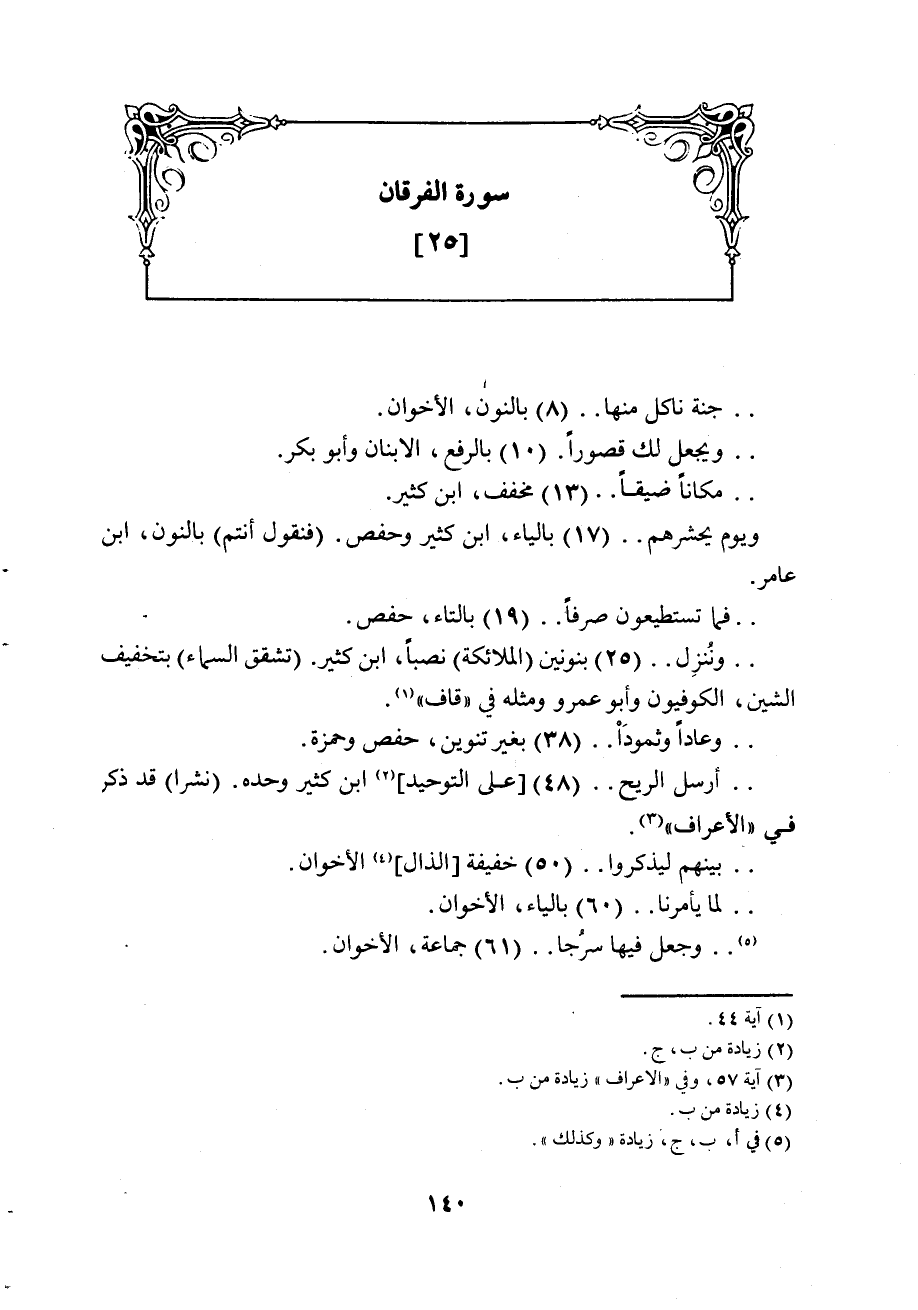 سورة الفرقان
[٢٥]
. . جنة ناكل منها. . (٨) بالنون، الأخوان.
. . ويجعل لك قصوراً. (١٠) بالرفع، الابنان وأبو بكر.
. . مكاناً ضيقاً. . (١٣) مخفف، ابن كثير.
ويوم يحشرهم. . (١٧) بالياء، ابن كثير وحفص. (فنقول أنتم) بالنون، ابن
عامر.
. . فما تستطيعون صرفاً. . (١٩) بالتاء، حفص.
. . ونُنزِل. . (٢٥) بنونين (الملائكة) نصباً، ابن كثير. (تشقق السماء) بتخفيف
الشين، الكوفيون وأبو عمرو ومثله في «قاف»(١).
. . وعاداً وثموداْ. . (٣٨) بغير تنوين، حفص وحمزة.
. . أرسل الريح. . (٤٨) [على التوحيد](٢) ابن كثير وحده. (نشرا) قد ذكر
في «الأعراف»(٣).
. . بينهم ليذكروا. . (٥٠) خفيفة [الذال](٤) الأخوان.
. . لما يأمرنا. . (٦٠) بالياء، الأخوان.
(٥). . وجعل فيها سرُجا. . (٦١) جماعة، الأخوان.
(١) آية ٤٤.
(٢) زيادة من ب، ج.
(٣) آية ٥٧، وفي «الاعراف» زيادة من ب.
(٤) زيادة من ب.
(٥) في أ، ب، ج، زيادة «وكذلك».
١٤٠